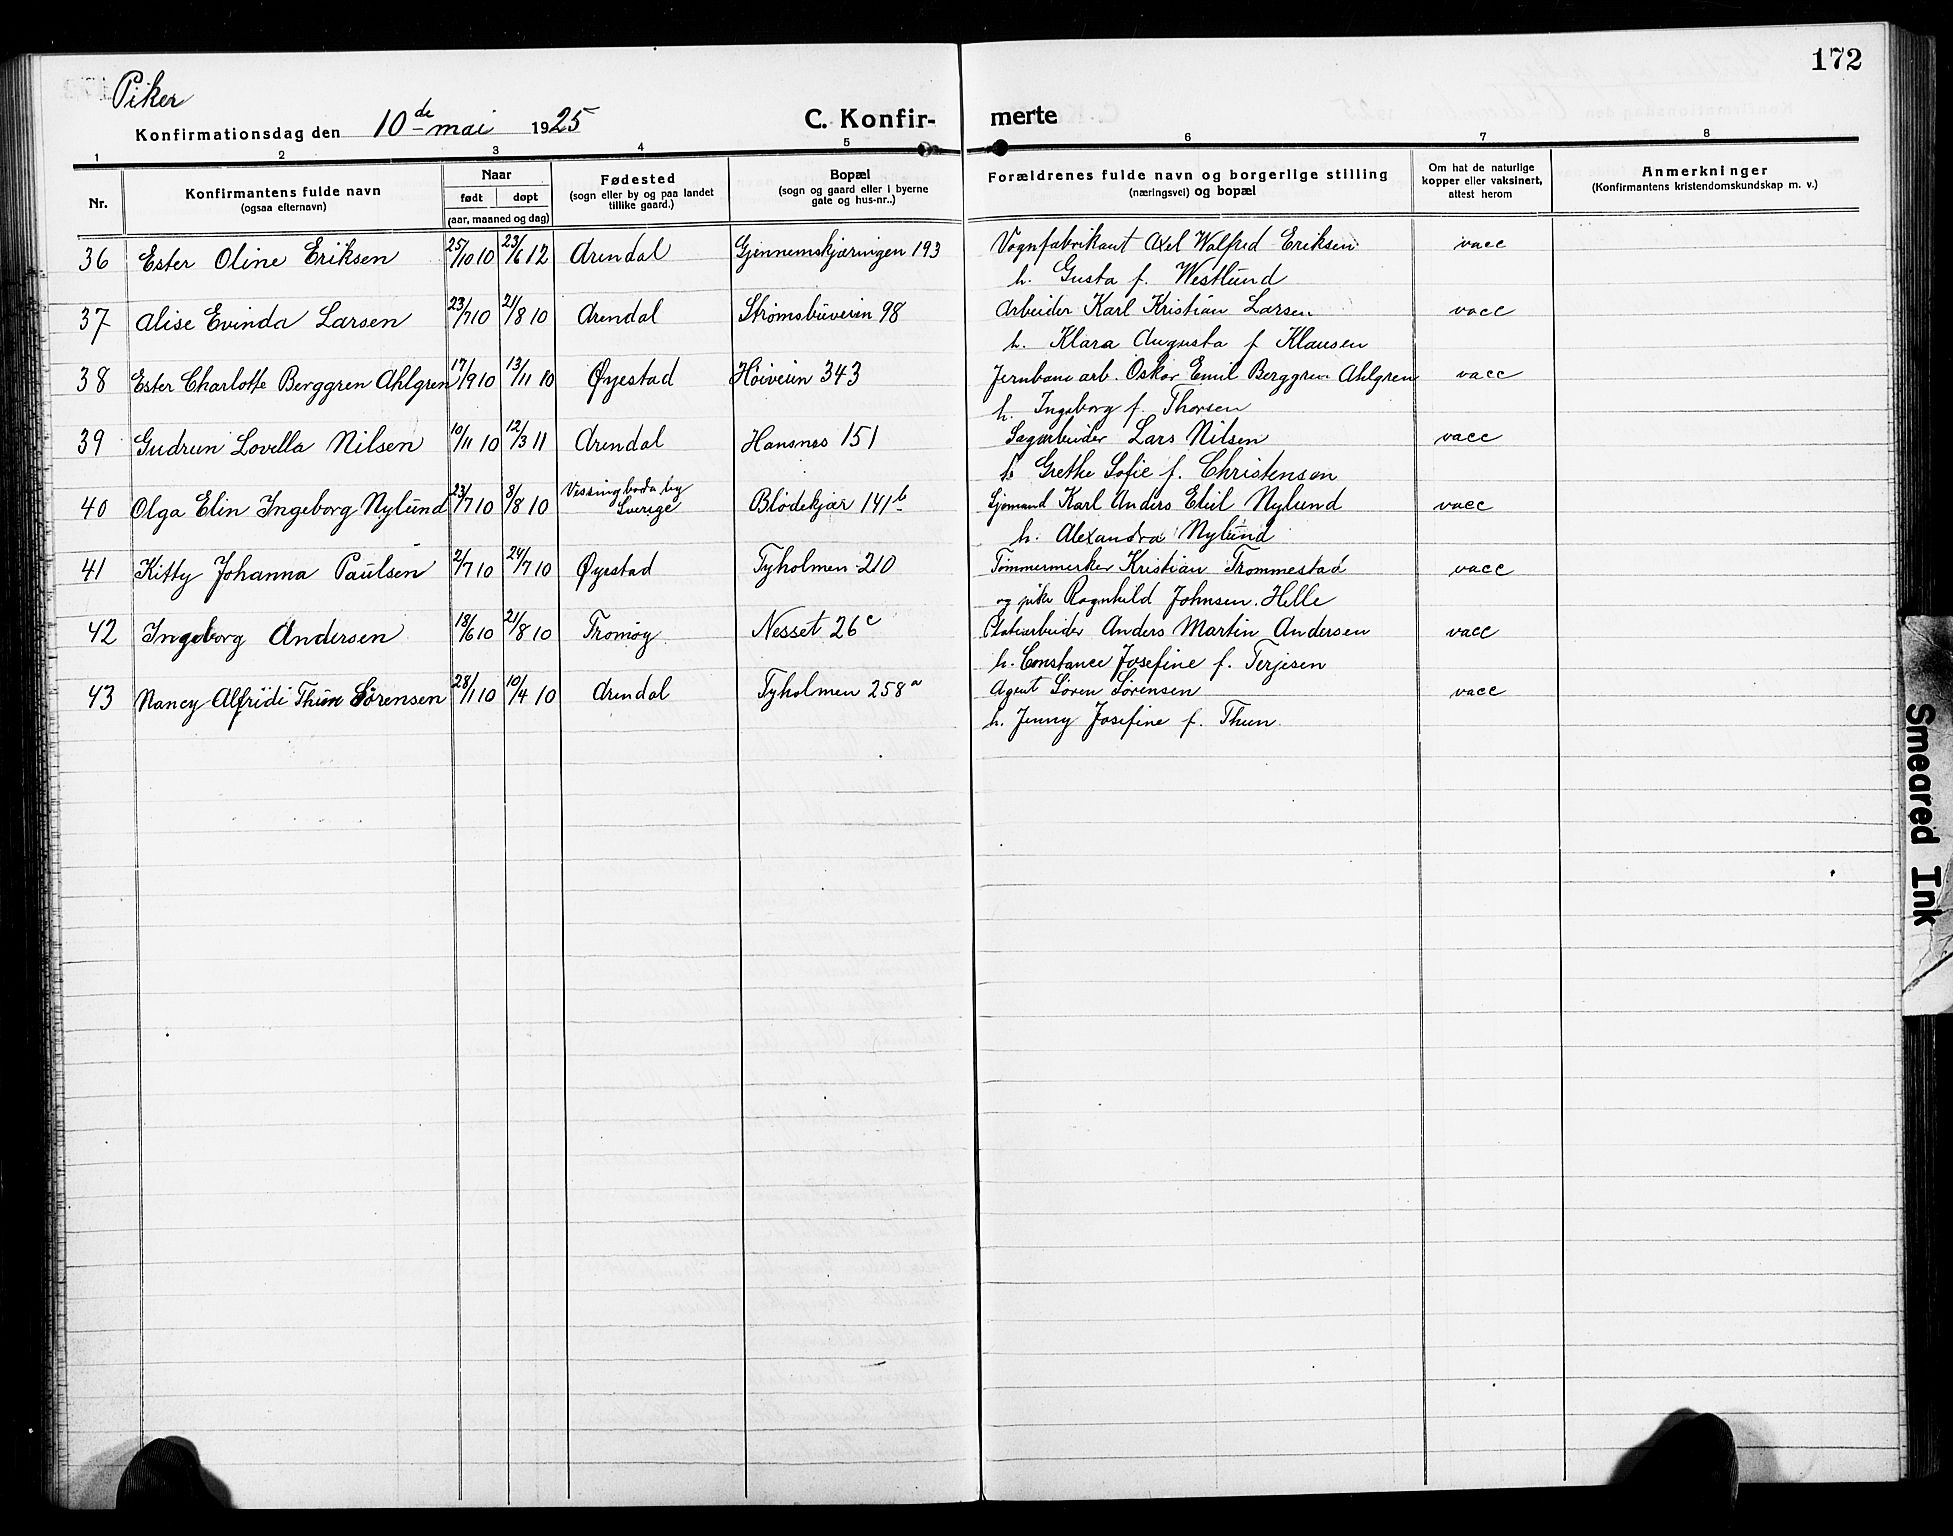 172
Piker
Konfirmationsdag den 10de mai 1925
C. Konfir- merte
1 2 3 4 5 6 7 8
Nr.
Konfirmantens fulde navn
(ogsaa efternavn)
Naar
født døpt
(aar, maaned og dag)
Fødested
(sogn eller by og paa landet
tillike gaard.)
Bopæl
(sogn og gaard eller i byerne
gate og hus-nr..)
Forældrenes fulde navn og borgerlige stilling
(næringsvei) og bopæl
Om hat de naturlige
kopper eller vaksinert,
attest herom
Anmerkninger
(Konfirmantens kristendomskundskap m. v.)
36 Ester Oline Eriksen 25/10 10 23/6 12 Arendal Gjennemskjæringen 193 Vognfabrikant Axel Walfred Eriksen vacc
h. Gusta f. Westlund
37 Alise Evinda Larsen 23/7 10 21/8 10 Arendal Strømsbuveien 98 Arbeider Karl Kristian Larsen vacc
h. Klara Augusta f Klausen
38 Ester Charlotte Berggren Ahlgren 17/9 10 13/11 10 Øyestad Høiveien 343 Jernbane arb. Oskar Emil Berggren Ahlgren vacc
h. Ingeborg f. Thorsen
39 Gudrun Lovella Nilsen 10/11 10 12/3 11 Arendal Hansnes 151 Sagarbeider Lars Nilsen vacc
h Grethe Sofie f. Christensen
40 Olga Elin Ingeborg Nylund 23/7 10 8/8 10 Vissingboda by Blødekjær 141b Sjømand Karl Anders Eliel Nylund vacc
Sverige
h. Alexandra Nylund
41 Kitty Johanna Paulsen 2/7 10 24/7 10 Øyestad Tyholmen 210 Tømmermerker Kristian Trommestad vacc
og pike Ragnhild Johnsen. Helle
42 Ingeborg Andersen 18/6 10 21/8 10 Tromøy Nesset 26c Platearbeider Anders Martin Andersen vacc
h. Constance Josefine f. Terjesen
43 Nancy Alfridi Thun Sørensen 28/1 10 10/4 10 Arendal Tyholmen 258a Agent Søren Sørensen vacc
h. Jenny Josefine f. Thun.
Smeared Ink